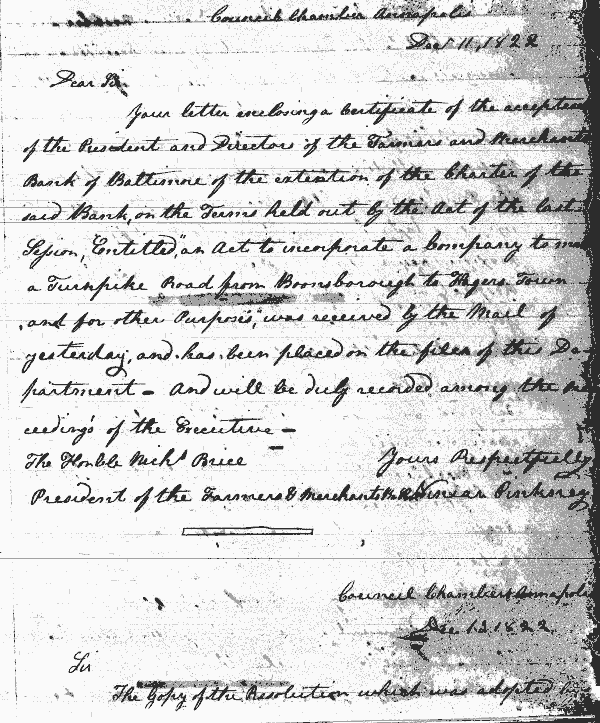 Council Chamber Annapolis
Decr 11, 1822
Dear Sir
Your letter enclosing a Certificate of the acceptan
of the President and Directors of the Farmers and Merchants
Bank of Baltimore of the extention of the Charter of the
said Bank, on the Terms held out by the Act of the last
Session, Entitled, "an Act to incorporate a Company to ma
a Turnpike Road from Boonsborough to Hagers Town
and for other Purposes", was received by the Mail of
yesterday, and has been placed on the files of this De
partment - And will be duly recorded among the Pro
ceedings of the Executive -
The Honble Nichs Brice Yours Respectfully
President of the Farmers & Merchants Bk Ninian Pinkney
Council Chamber Annapolis
Dec 12 1822
Sir
The Copy of the Resolution which was adopted